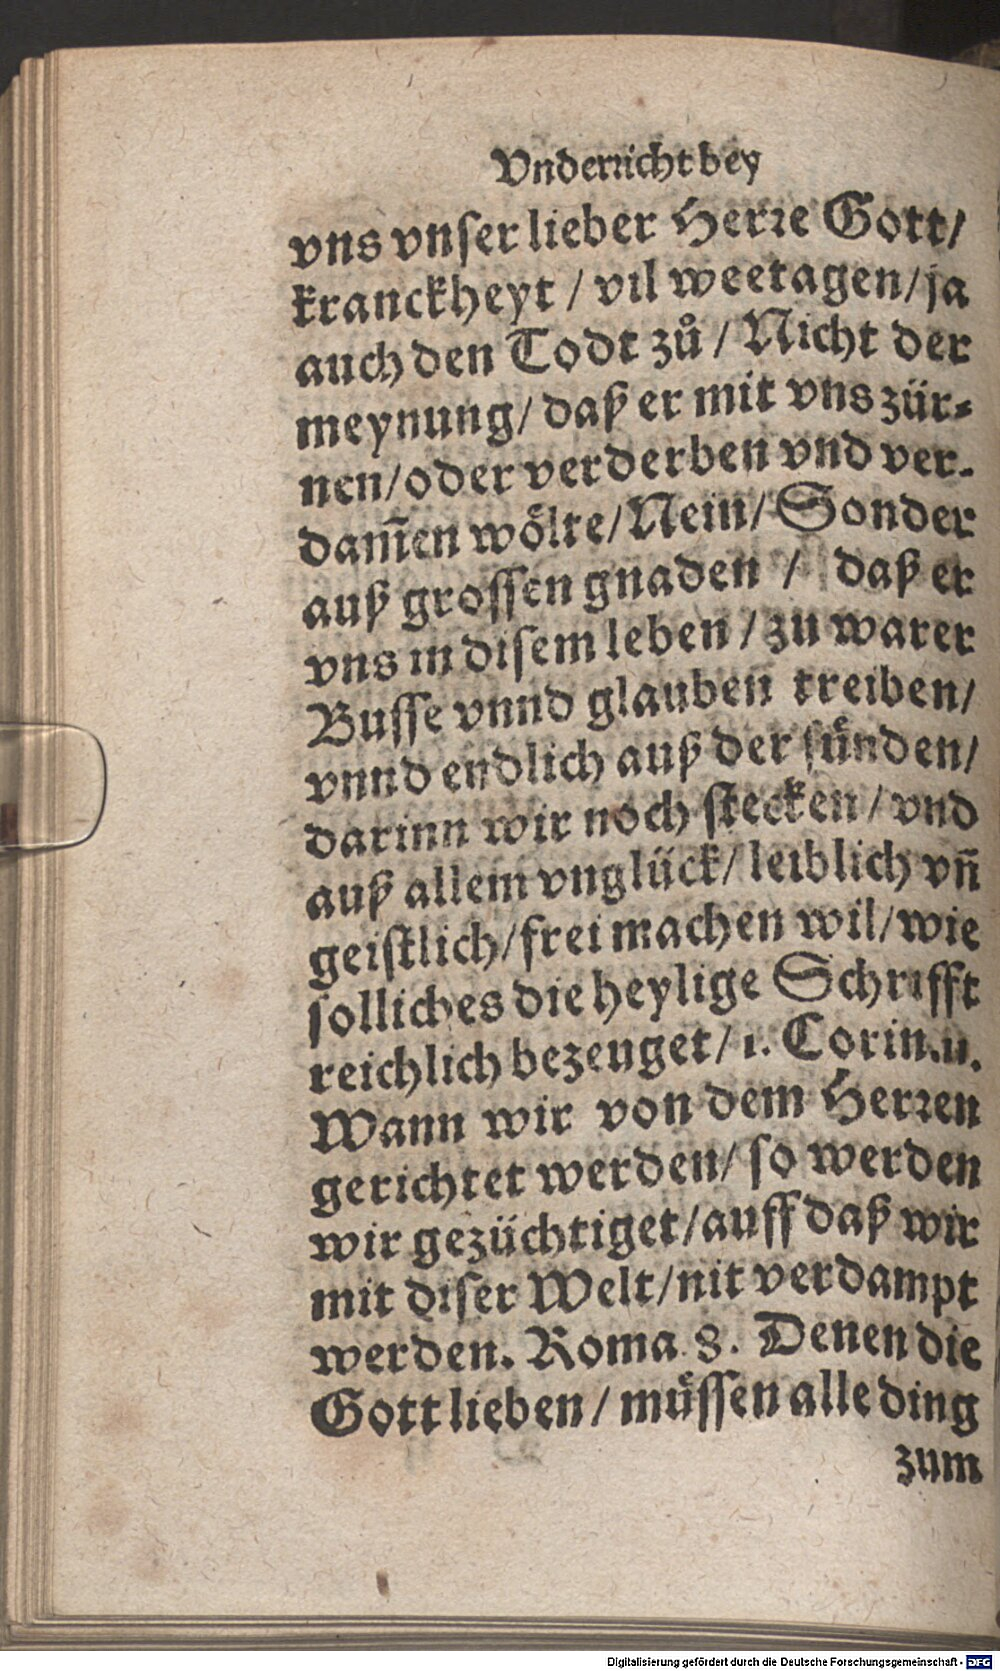 Vnderricht bey
vns vnser lieber Herre Gott/
kranckheyt / vil weetagen/ ja
auch den Todt zuͦ / Nicht der
meynung/ daß er mit vns zür⸗
nen/ oder verderben vnd ver-
dam̄en woͤlte/ Nein/ Sonder
auß grossen gnaden / daß er
vns in disem leben / zu warer
Busse vnnd glauben treiben/
vnnd endlich auß der suͤnden/
darinn wir noch stecken / vnd
auß allem vnglück/ leiblich vn̄
geistlich/ frei machen wil/ wie
solliches die heylige Schrifft
reichlich bezeuget/ 1. Corin. 11.
Wann wir von dem Herren
gerichtet werden/ so werden
wir gezüchtiget/ auff daß wir
mit diser Welt/ nit verdampt
werden. Roma. 8. Denen die
Gott lieben / muͤssen alle ding
zum
Digitalisierung gefördert durch die Deutsche Forschungsgemeinschaft - DFG